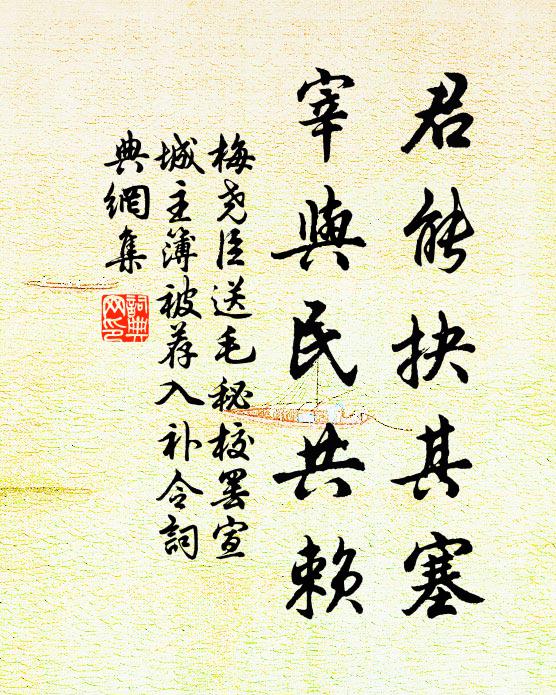 君能抉其塞
宰與民共賴
梅尧臣送毛秘校罢宣
城主簿被荐入补令詞
典網集
詞典
网印